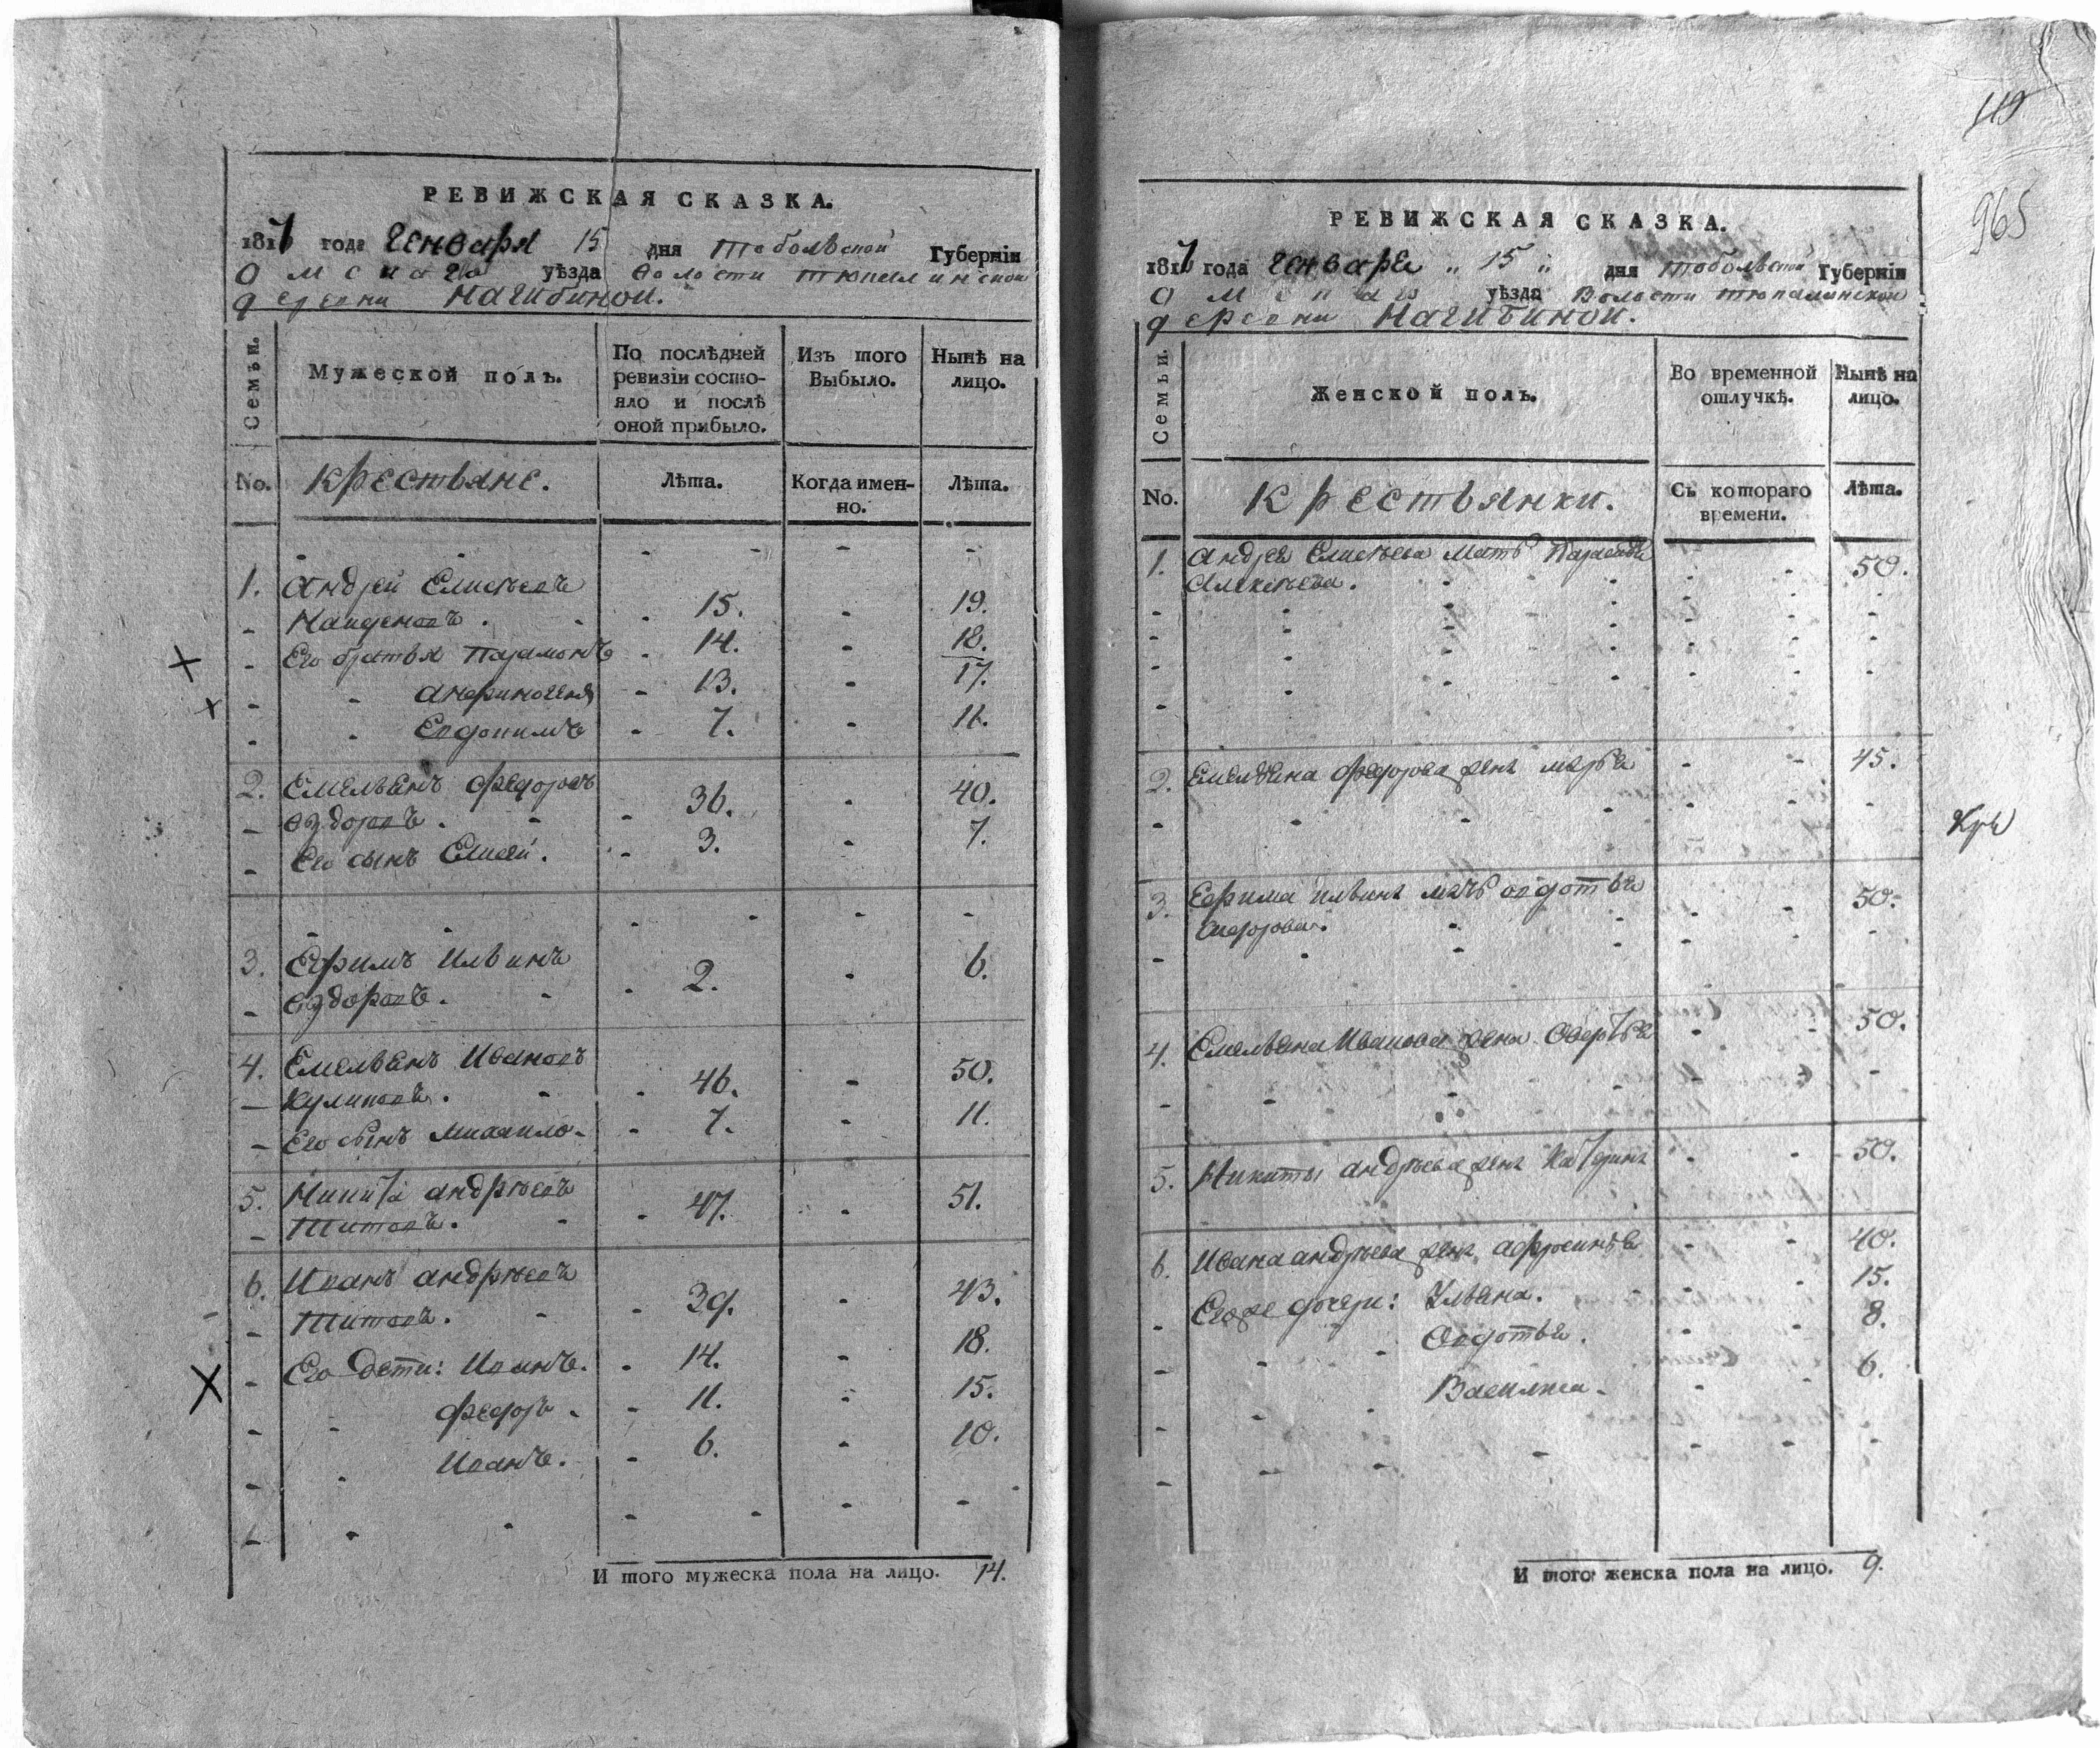 РЕВИЖСКАЯ СКАЗКА.
1817 года Генваря 15 дня Тобольской Губерніи
Омскаго уѣзда волости тюкалинской
деревни Нагибиной.
Семьи.
Мужеской полъ.
По послѣдней ревизіи состояло и послѣ оной прибыло.
Изъ того Выбыло.
Нынѣ на лицо.
No.
Крестьяне.
Лѣта.
Когда именно.
Лѣта.
1. Андрей Елисѣевъ
Найденовъ. 15. 19.
Его братья Парамонъ 14. 18.
Анфиногенъ 13. 17.
Евфимъ 7. 11.
2. Емельянъ Федоровъ
36. 40.
Его сынъ Елисей. 3. 7.
3. Ефимъ Ильинъ
2. 6.
4. Емельянъ Ивановъ
Куликовъ. 46. 50.
Его сынъ Михайло 7. 11.
5. Никита андрѣевъ
Титовъ. 47. 51.
6. Иванъ андрѣевъ
Титовъ. 39. 43.
Его дети: Иванъ. 14. 18.
Федоръ 11. 15.
Иванъ. 6. 10.
И того мужеска пола на лицо. 14.
119
965
РЕВИЖСКАЯ СКАЗКА.
1817 года Генваря 15 дня тобольской Губерніи
Омскаго уѣзда Волости тюкалинской
деревни Нагибиной.
Семьи.
Женской полъ.
Во временной отлучкѣ.
Нынѣ на лицо.
No.
Крестьянки.
Съ котораго времени.
Лѣта.
1. Андрея Елисѣева мать
Алексѣева. 50.
2. Емельяна Федорова жена марья 45.
3. Ефима ильина мать овдотья
50.
4. Емельяна Иванова жена 50.
5. Никиты андрѣева жена Катерина 50.
6. Ивана андрѣева жена афросинья 40.
Его же дочери: Ульяна. 15.
Овдотья. 8.
Василиса. 6.
И того женска пола на лицо. 9.